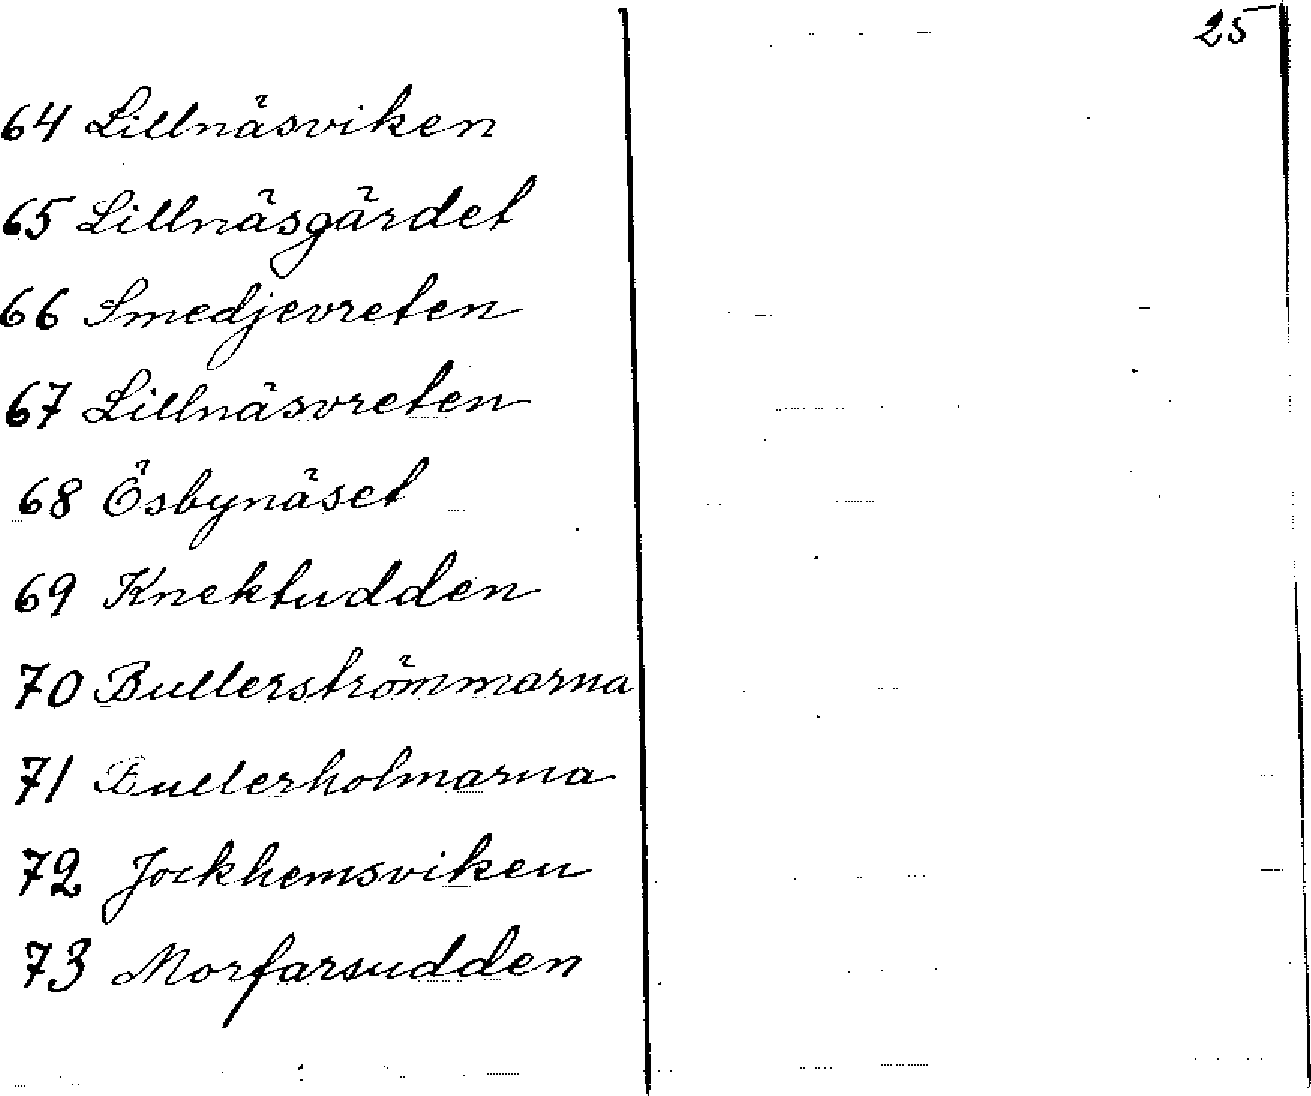 25
64 Lillnäsviken
65 Lillnäsgärdet
66 Smedjevreten
67 Lillnäsvreten
68 Ösbynäset
69 Knektudden
70 Bullerströmmarna
71 Bullerholmarna
72 Jockhemsviken
73 Morfarsudden